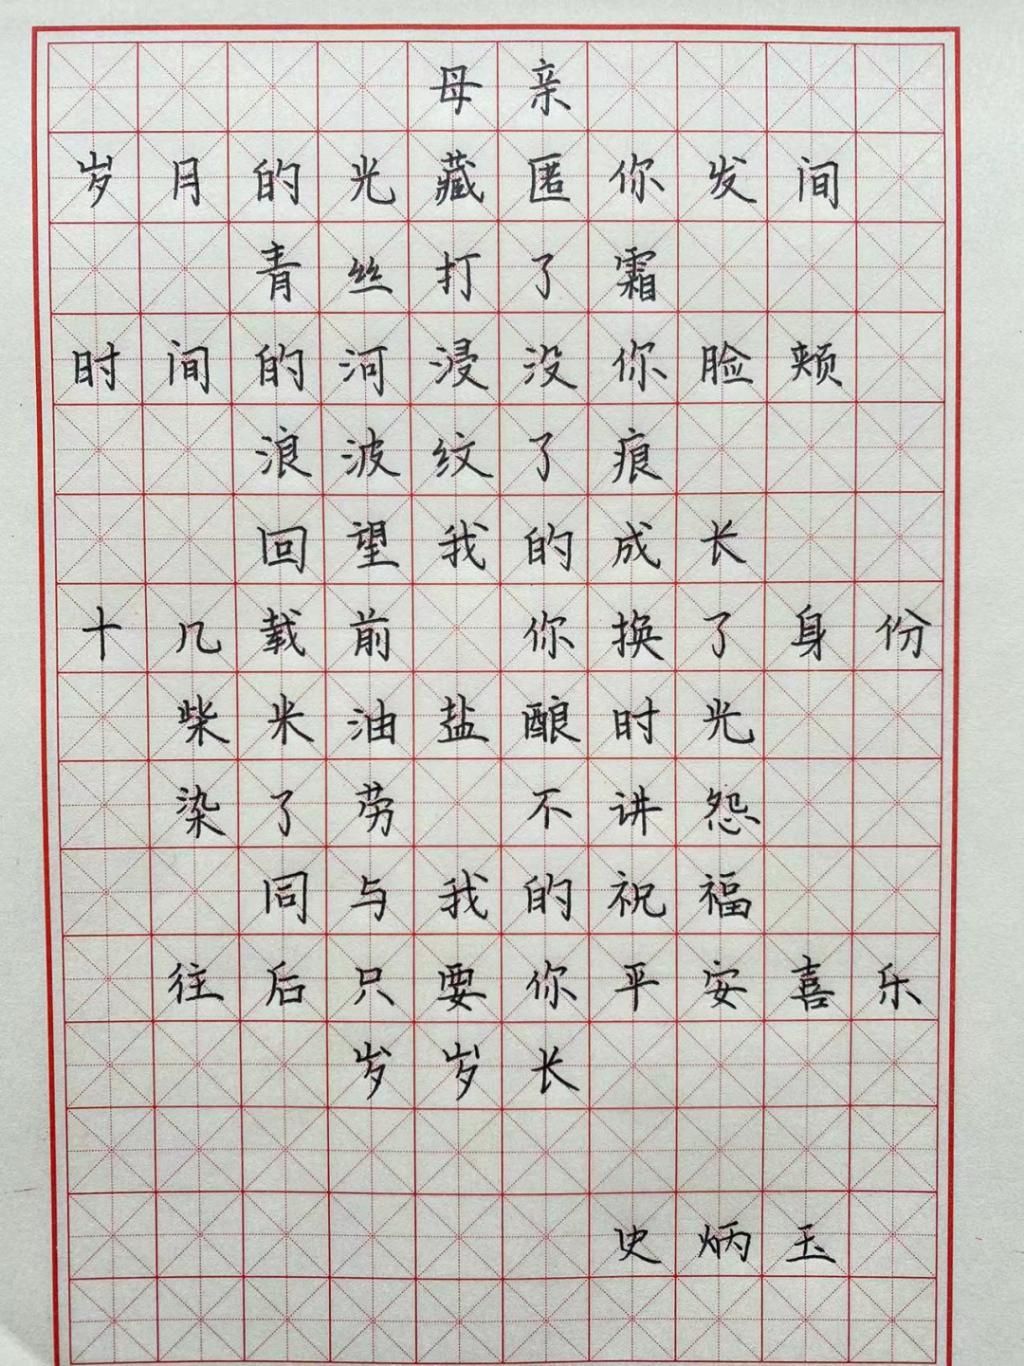 母亲
岁月的光藏匿你发间
青丝打了霜
时间的河浸没你脸颊
浪波纹了痕
回望我的成长
十几载前 你换了身份
柴米油盐酿时光
染了劳 不讲怨
同与我的祝福
往后只要你平安喜乐
岁岁长
史炳玉